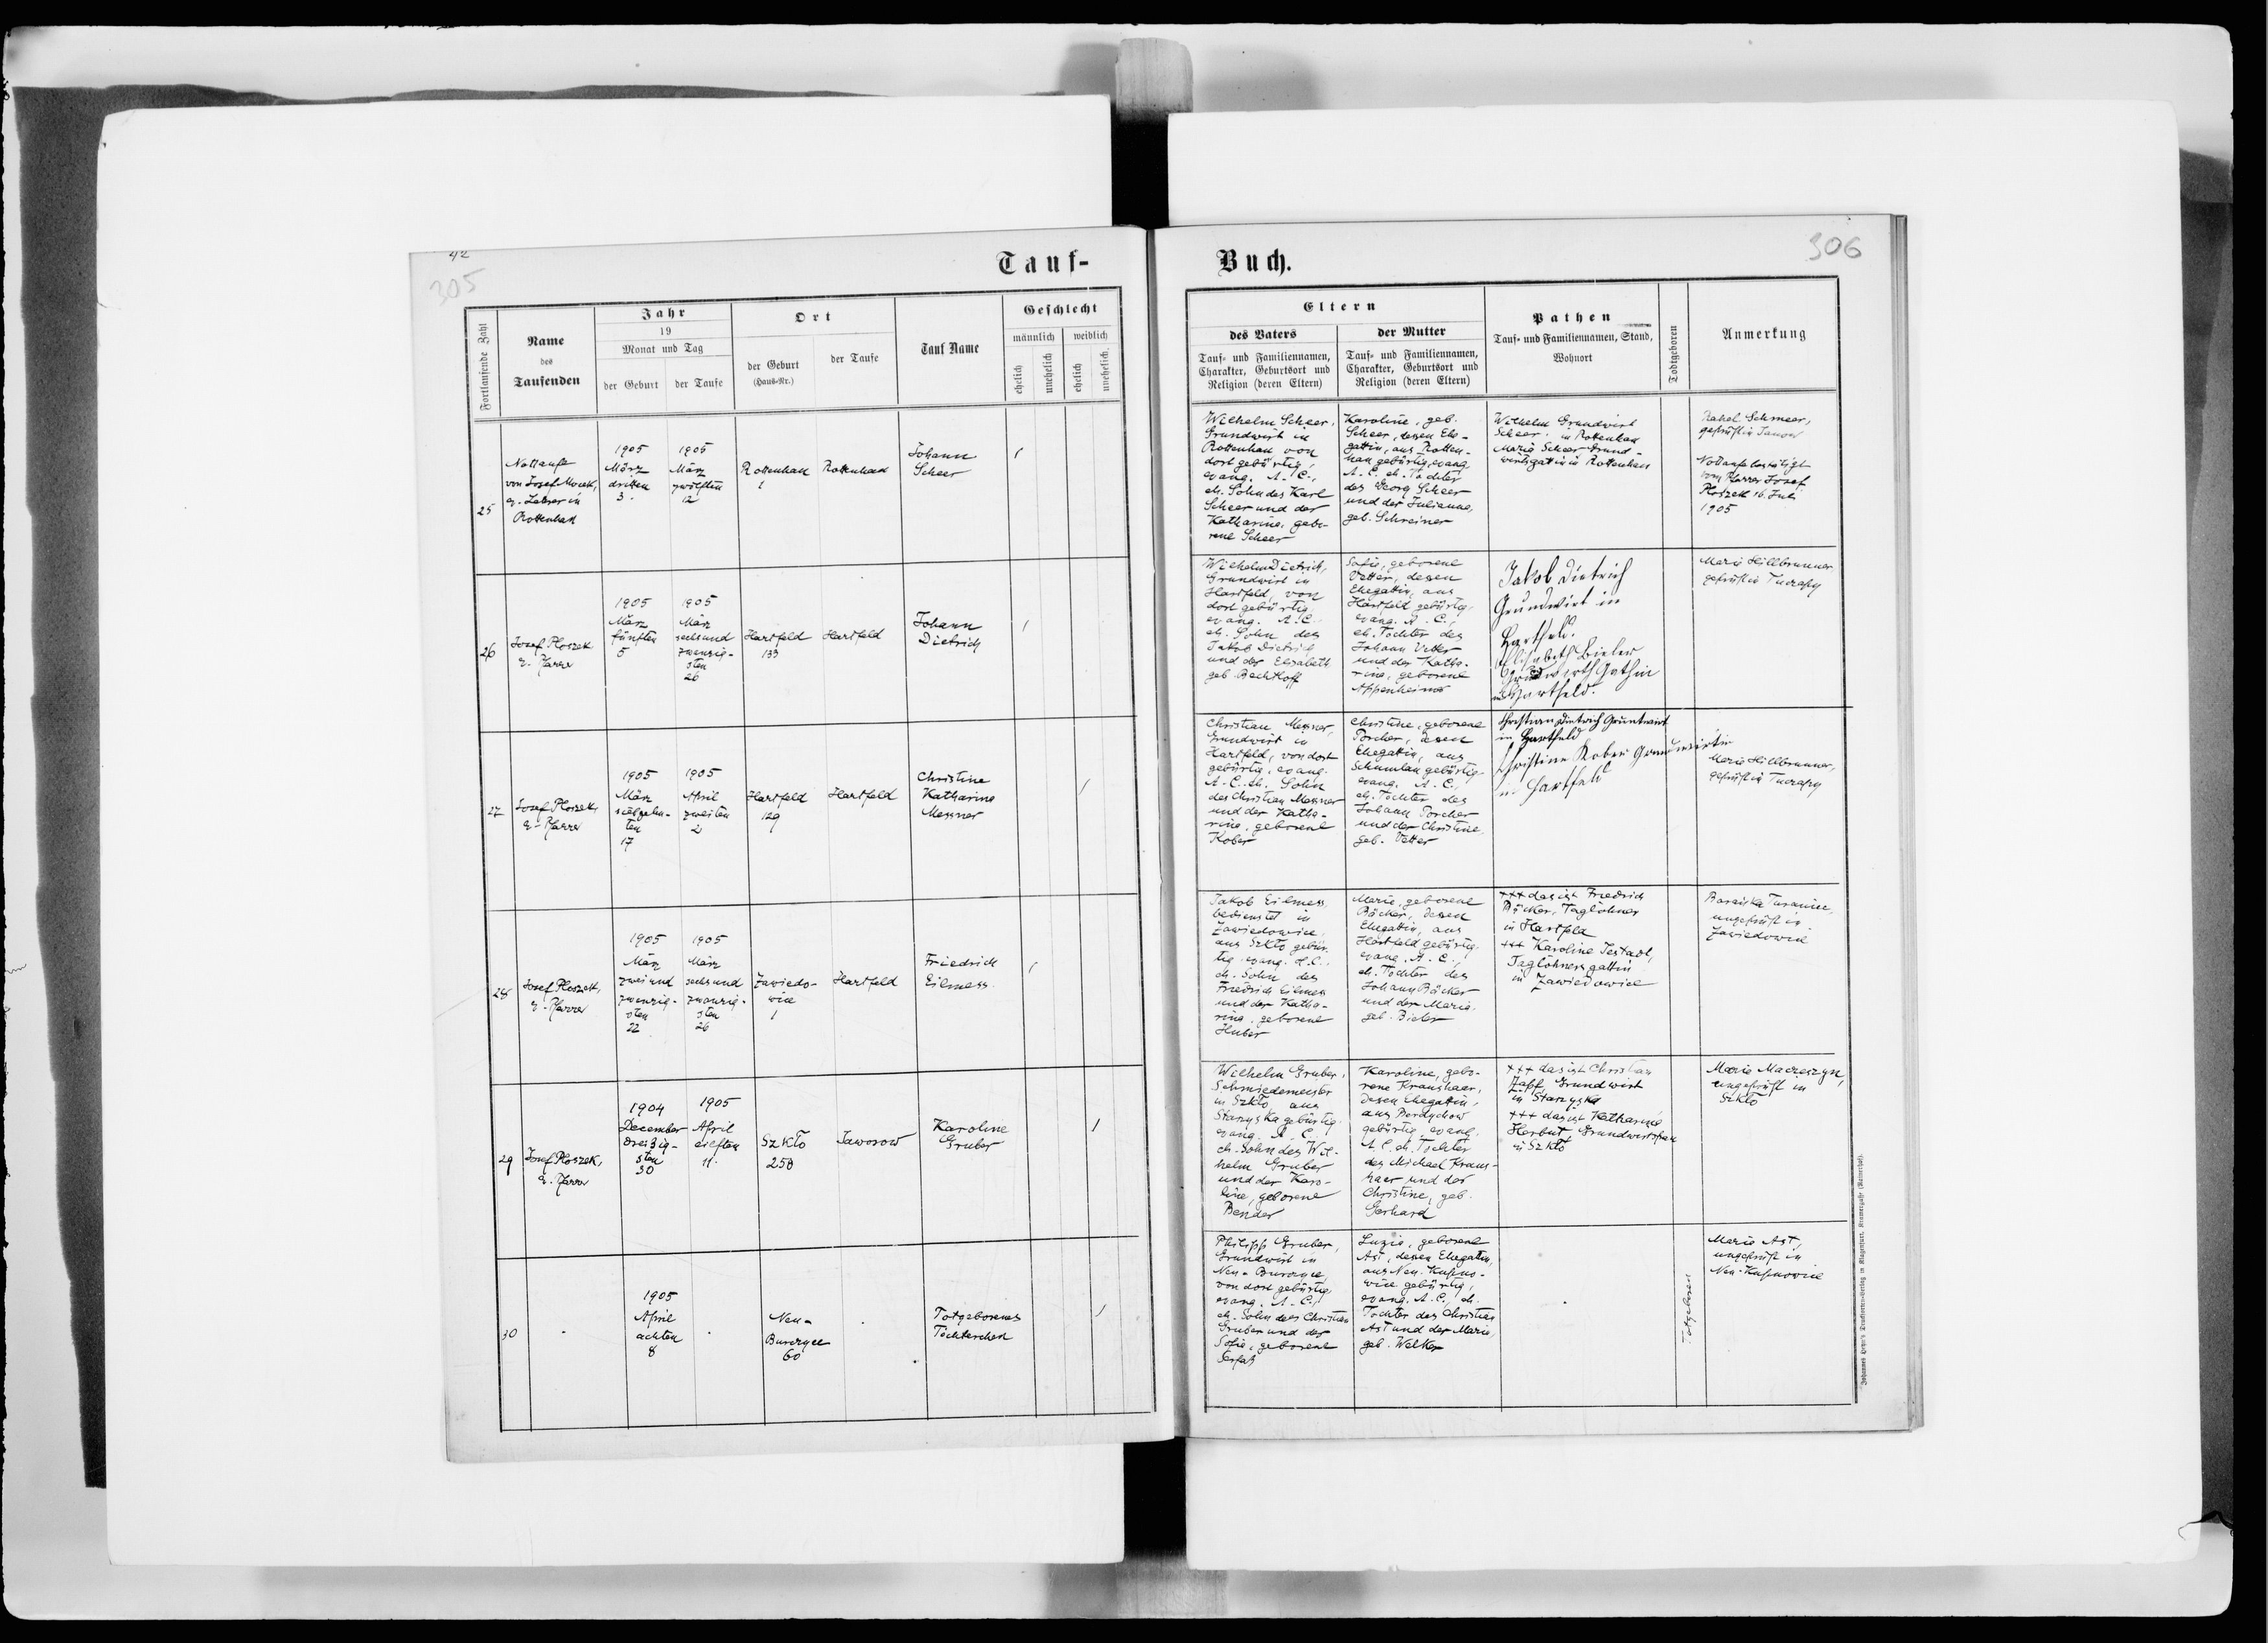 42
305
Tauf-
Fortlaufende Zahl
Name
des
Taufenden
Jahr
19
Monat und Tag
der Geburt
der Taufe
Ort
der Geburt
(Haus-Nr.)
der Taufe
Tauf Name
Geschlecht
männlich
weiblich
ehelich
unehelich
ehelich
unehelich.
25
Nottaufe
von Josef Mock,
ev. Lehrer in
Rottenhan
1905
März
dritten
3.
1905
März
zwölften
12
Rottenhan
1
Rottenhan
Johann
Scheer
26
Josef Ploszek
ev. Pfarrer
1905
März
fünften
5
1905
März
sechsund
zwanzig-
sten
26
Hartfeld
133
Hartfeld
Johann
Dietrich
27
Josef Ploszek,
ev. Pfarrer
1905
März
siebzehn-
ten
17
1905
April
zweiten
2
Hartfeld
129
Hartfeld
Christine
Katharina
Messner
28
Josef Ploszek,
ev. Pfarrer
1905
März
zweiund
zwanzig-
sten
22
1905
März
sechsund
zwanzig-
sten
26
Zawiedo-
wice
1
Hartfeld
Friedrich
Eilmess.
29
Josef Ploszek,
ev. Pfarrer
1904
December
dreizig-
sten
30
1905
April
eilften
11.
Szkło
258
Jaworow
Karoline
Gruber
30
1905
April
achten
8
Neu-
Burczyce
60
Totgeborenes
Töchterchen
306
Buch.
Eltern
des Vaters
Tauf- und Familiennamen,
Charakter, Geburtsort und
Religion (deren Eltern)
der Mutter
Tauf- und Familiennamen,
Charakter, Geburtsort und
Religion (deren Eltern)
Pathen
Tauf- und Familiennamen, Stand,
Wohnort
Todtgeboren
Anmerkung
Wilhelm Scheer,
Grundwirt in
Rottenhan von
dort gebürtig,
evang. A.C.,
eh. Sohn des Karl
Scheer und der
Katharina, gebo-
rene Scheer
Karoline, geb.
Scheer, dessen Ehe-
gattin, aus Rotten-
han gebürtig, evang.
A.C. eh. Tochter
des Georg Scheer
und der Julianna,
geb. Schreiner
Wilhelm Grundwirt
Scheer in Rottenhan
Maria Scheer Grund-
wirtsgattin in Rottenhan
Schmeer,
geprüft in Janow
Nottaufe bestätigt
vom Pfarrer Josef
Ploszek 16. Juli
1905
Wilhelm Dietrich,
Grundwirt in
Hartfeld, von
dort gebürtig
evang. A.C.
eh. Sohn des
Jakob Dietrich
und der Elisabeth
geb. Bechtloff
Sofie, geborene
Vetter, dessen
Ehegattin, aus
Hartfeld gebürtig,
evang. A.C.,
eh. Tochter des
Johann Vetter
und der Katha-
rina, geborene
Appenheimer
Jakob Dietrich
Grundwirt in
Hartfeld.
Elisabeth Bieler
Grundwirth Gathin
in Hartfeld.
Marie Hillbrunner
geprüft in
Christian Messner,
Grundwirt in
Hartfeld, von dort
gebürtig, evang.
A.C. eh. Sohn
des Christian Messner
und der Katha-
rina, geborene
Kober
Christine, geborene
Porcher, dessen
Ehegattin, aus
Schumlau gebürtig
evang. A.C.,
eh. Tochter des
Johann Porcher
und der Christine,
geb. Vetter
Christian Dietrich Gruntwirt
in Hartfeld
Christine Kober Grundwirtin
in Hartfeld
Marie Hillbrunner,
geprüft in
Jakob Eilmess,
bedienstet in
Zawiedowice,
aus Szkło gebür-
tig evang. H.C.,
eh. Sohn des
Friedrich Eilmess
und der Katha-
rina, geborene
Huber
Marie, geborene
Bäcker, dessen
Ehegattin, aus
Hartfeld gebürtig
evang. A.C.,
eh. Tochter des
Johann Bäcker
und der Maria,
geb. Bieler
+++ das ist Friedrich
Bäcker, Taglöhner
in Hartfeld
+++ Karoline
Taglöhnersgattin
in Zawiedowice
ungeprüft in
Zawiedowice
Wilhelm Gruber,
Schmiedemeister
in Szkło, aus
Starzyska gebürtig
evang. A.C.,
eh. Sohn des Wil-
helm Gruber
und der Karo-
line, geborene
Bender
Karoline, gebo-
rene Kraushaar,
dessen Ehegattin,
aus Berdychow
gebürtig, evang.
A.C. eh. Tochter
des Michael Kraus-
haar und der
Christine, geb.
Gerhard
+++ das ist Christian
Zapf, Grundwirt
in Starzyska
+++ das ist Katharina
Herbut Grundwirtsfrau
in Szkło
Maria Macieszyn,
ungeprüft in
Szkło
Philipp Gruber,
Grundwirt in
Neu-Burczyce,
von dort gebürtig
evang. A.C.,
eh. Sohn des Christian
Gruber und der
Sofie, geborene
Luzia, geborene
Ast, dessen Ehegattin,
aus Neu-Kupno-
wice gebürtig,
evang. A.C., eh.
Tochter des Christian
Ast und der Maria,
geb. Welker
Totgeboren
Maria Ast,
ungeprüft in
Neu-Kupnowice